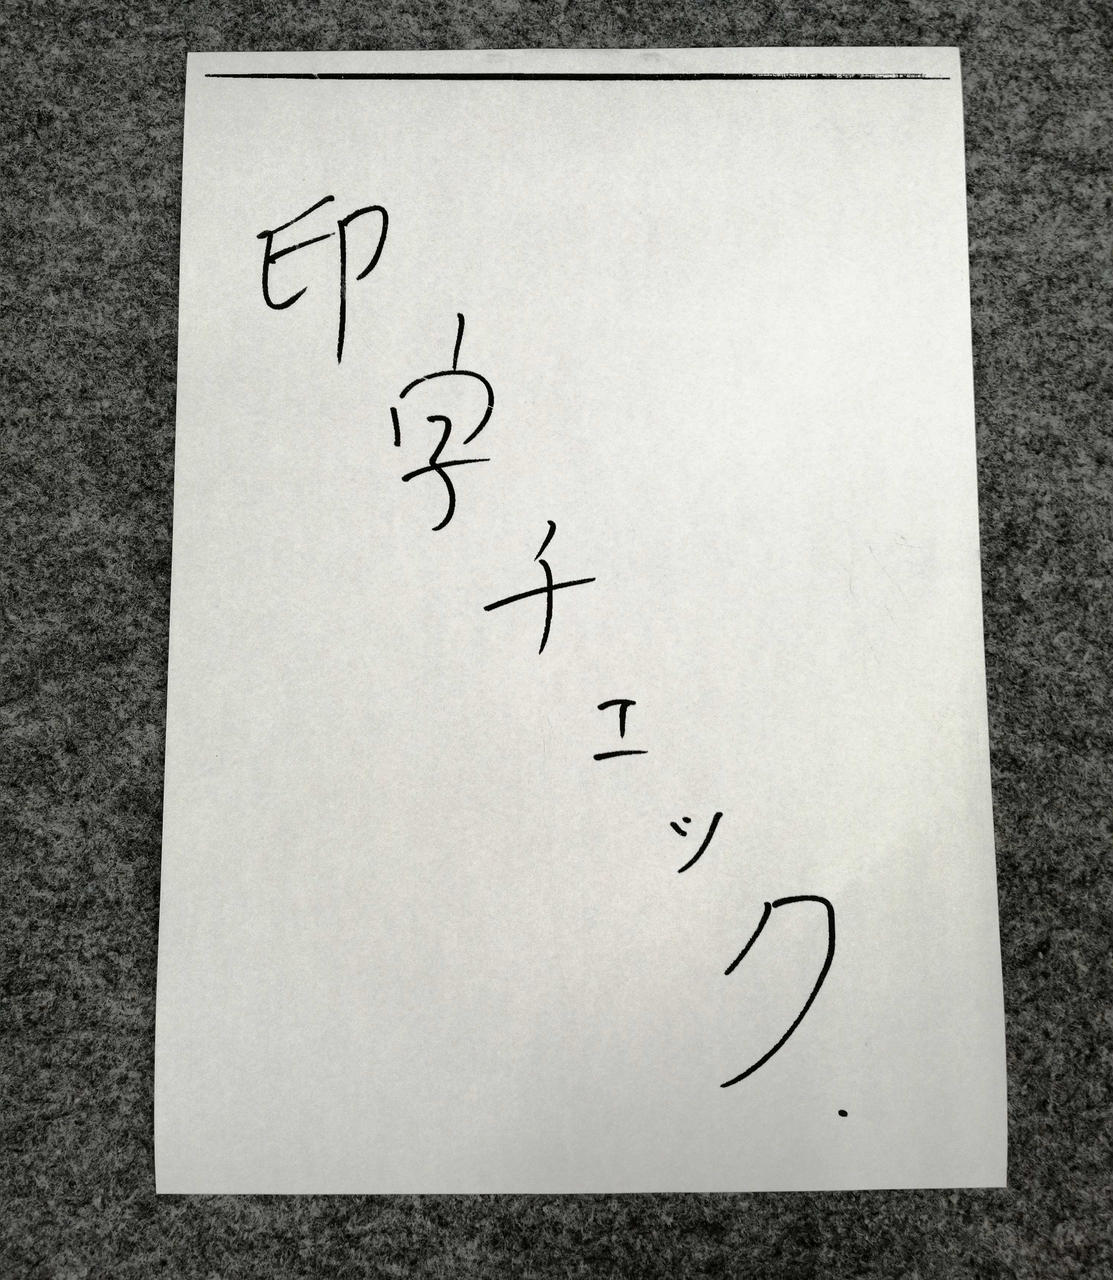 印字チェック.